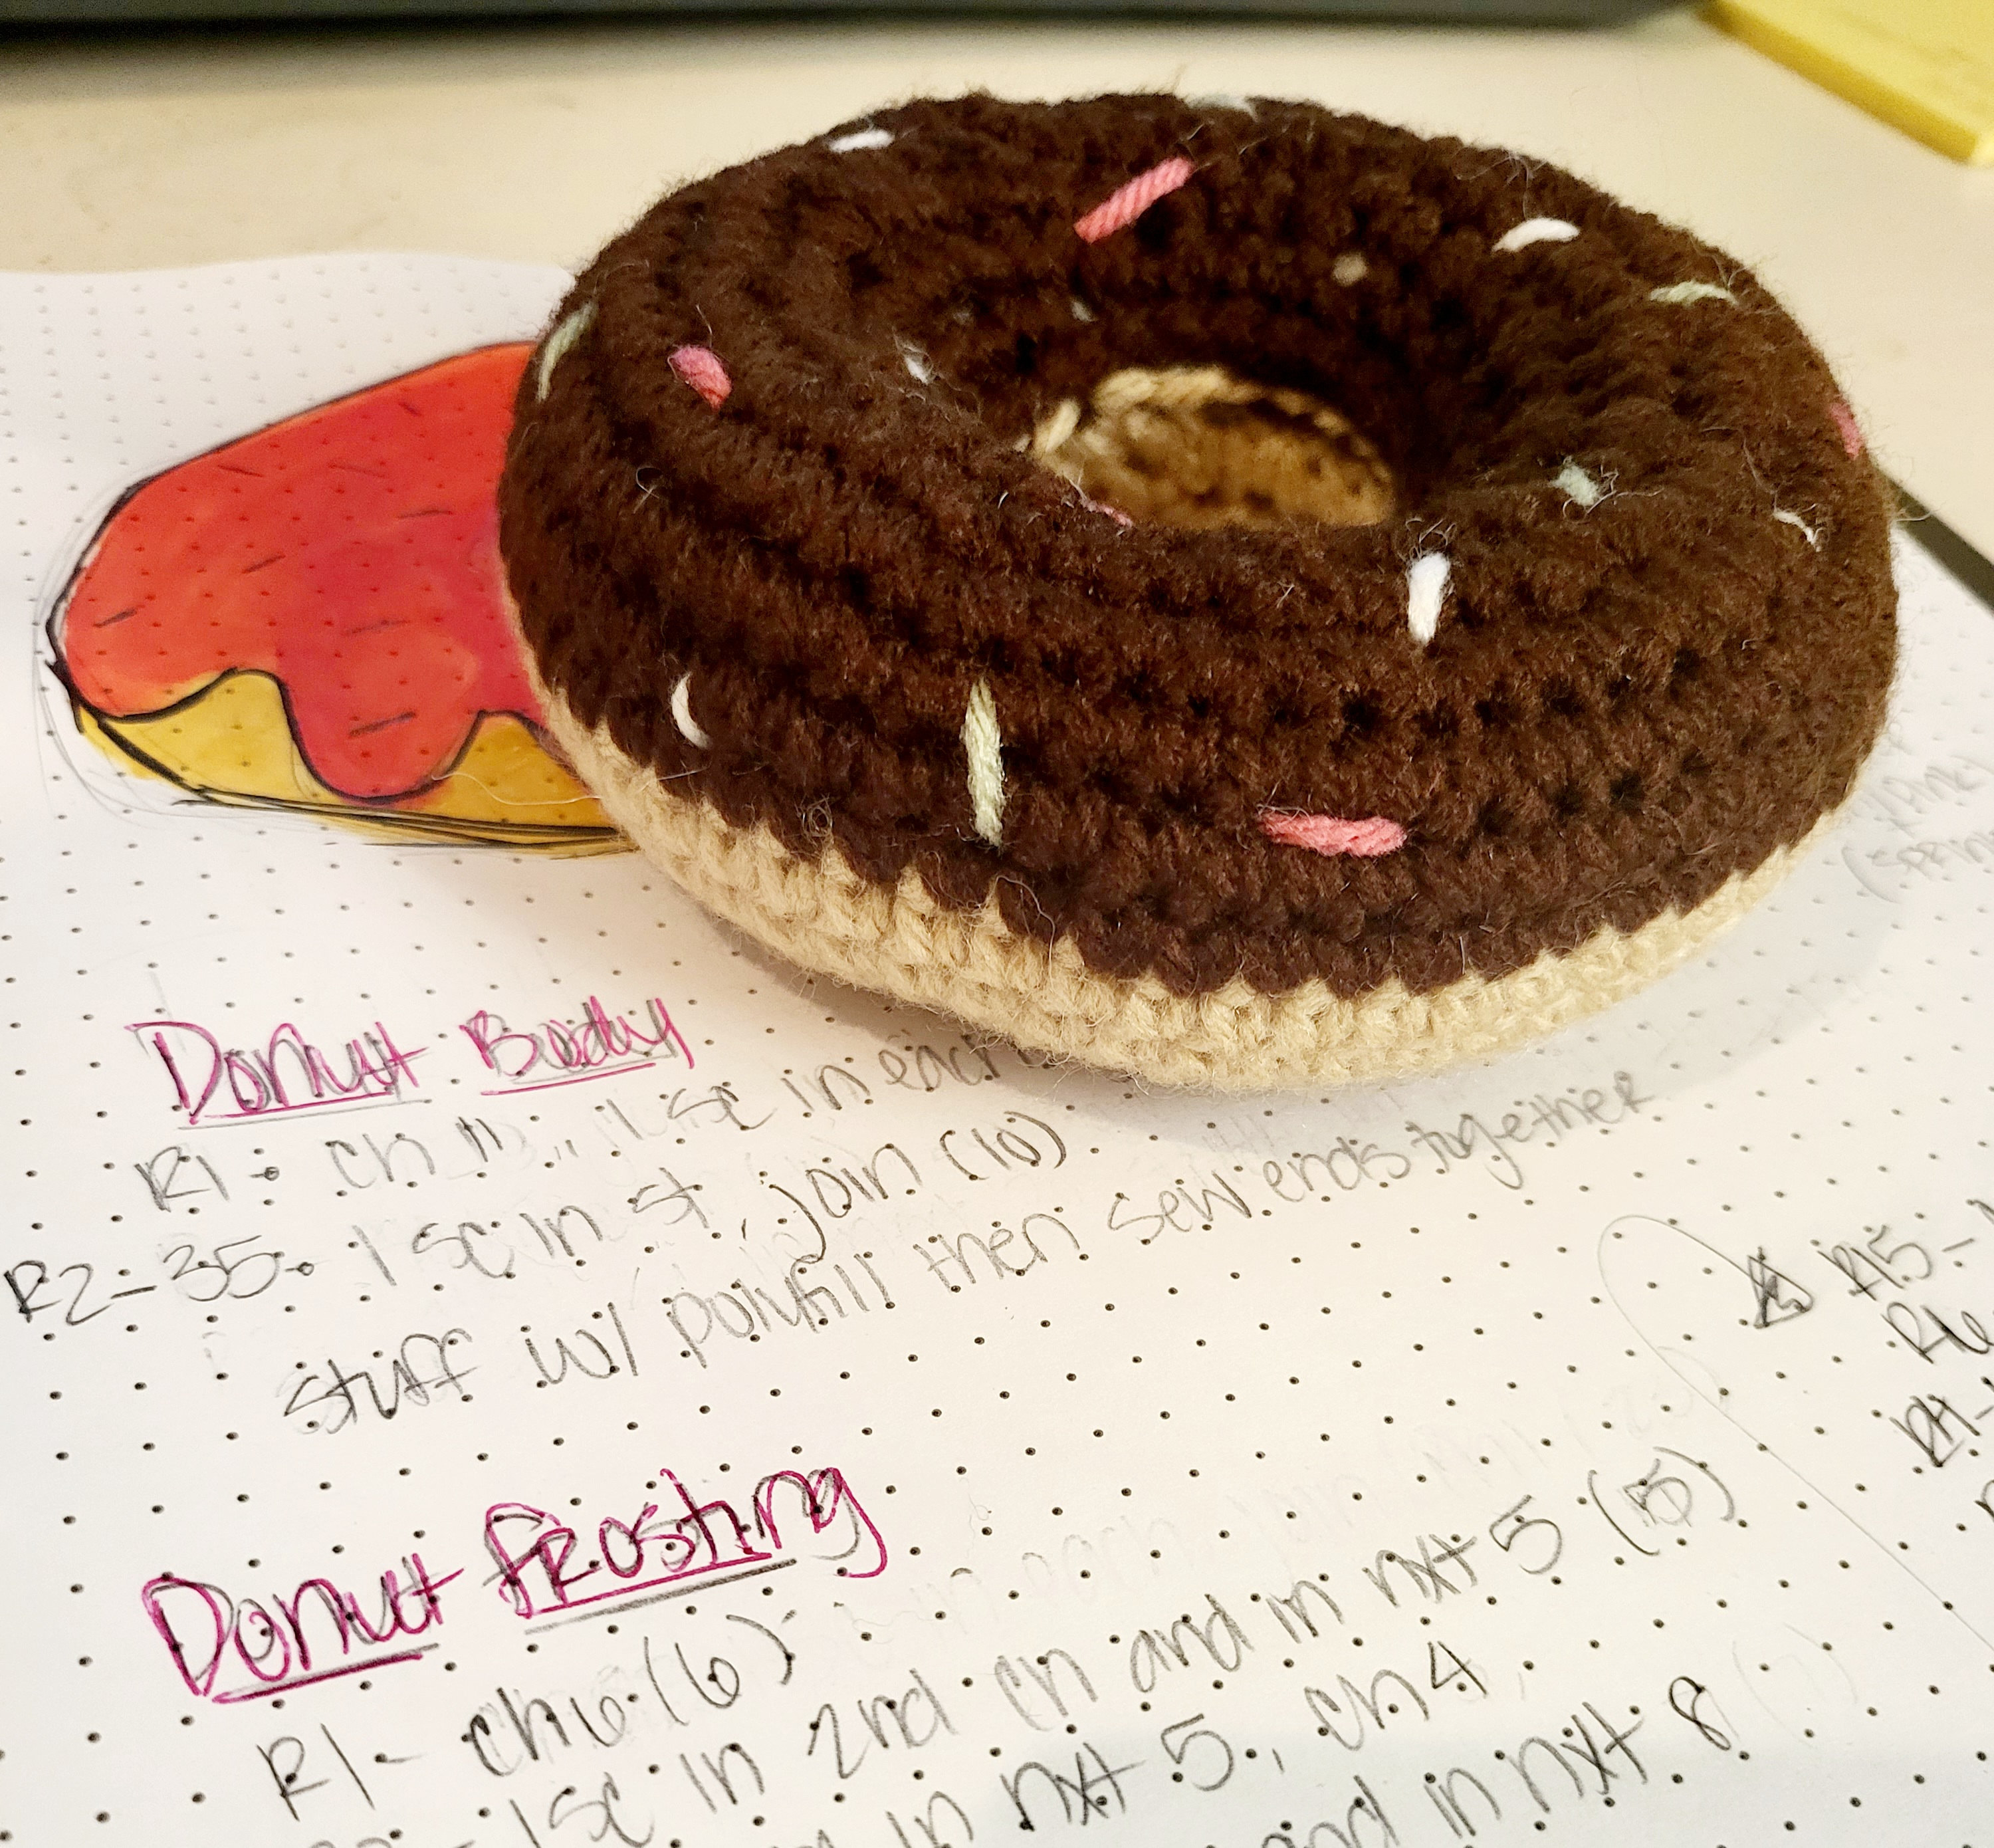 Donut Body
R1: ch 11, 1 sc in each
R2-35: 1 sc in st, join (10)
stuff w/ polyfill then sew ends together
Donut Frosting
R1- ch 6 (6)
1 sc in 2nd ch and in nxt 5 (5)
in nxt 5, ch 4
and in nxt 8
R15-
R16